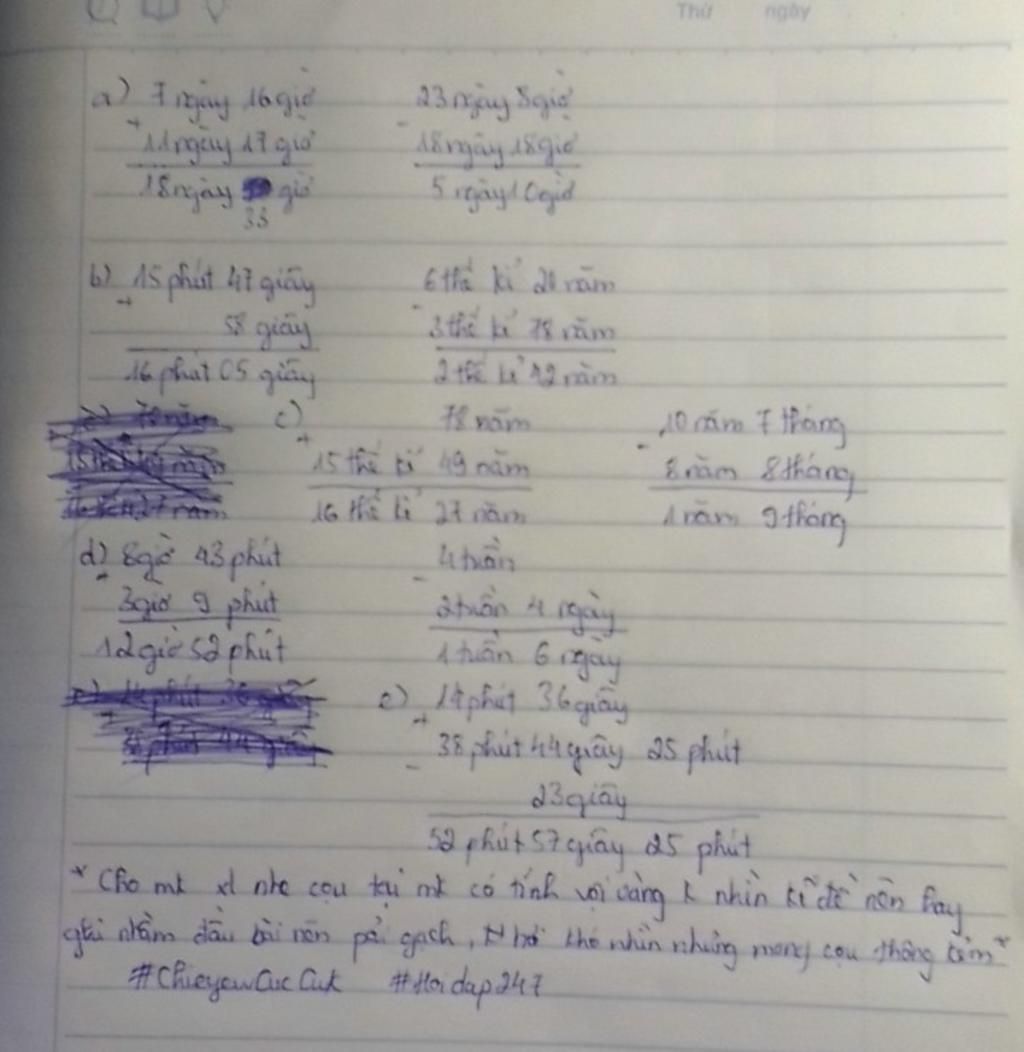 Thứ ngày
a) 7 ngày 16 giờ 23 ngày 8 giờ
+ -
11 ngày 17 giờ 18 ngày 18 giờ
18 ngày giờ 5 ngày 10 giờ
33
b) 15 phút 47 giây 6 thế kỉ 20 năm
+ -
58 giây 3 thế kỉ 78 năm
16 phút 05 giây 2 thế kỉ 42 năm
c) 78 năm 10 năm 7 tháng
+ -
15 thế kỉ 49 năm 8 năm 8 tháng
16 thế kỉ 27 năm 1 năm 9 tháng
d) 8 giờ 43 phút 4 tuần
- -
3 giờ 9 phút 2 tuần 4 ngày
12 giờ 52 phút 1 tuần 6 ngày
e) 14 phút 36 giây
+
38 phút 44 giây 25 phút
-
23 giây
52 phút 57 giây 25 phút
* Cho mk xl nhe cọu tại mk có tính vội vàng k nhìn kĩ đề nên hay
ghi nhầm đầu bài nên gạch, khó nhìn nhưng mong cọu thông cảm *
#ChieyeuCucCuk #Hoidap247